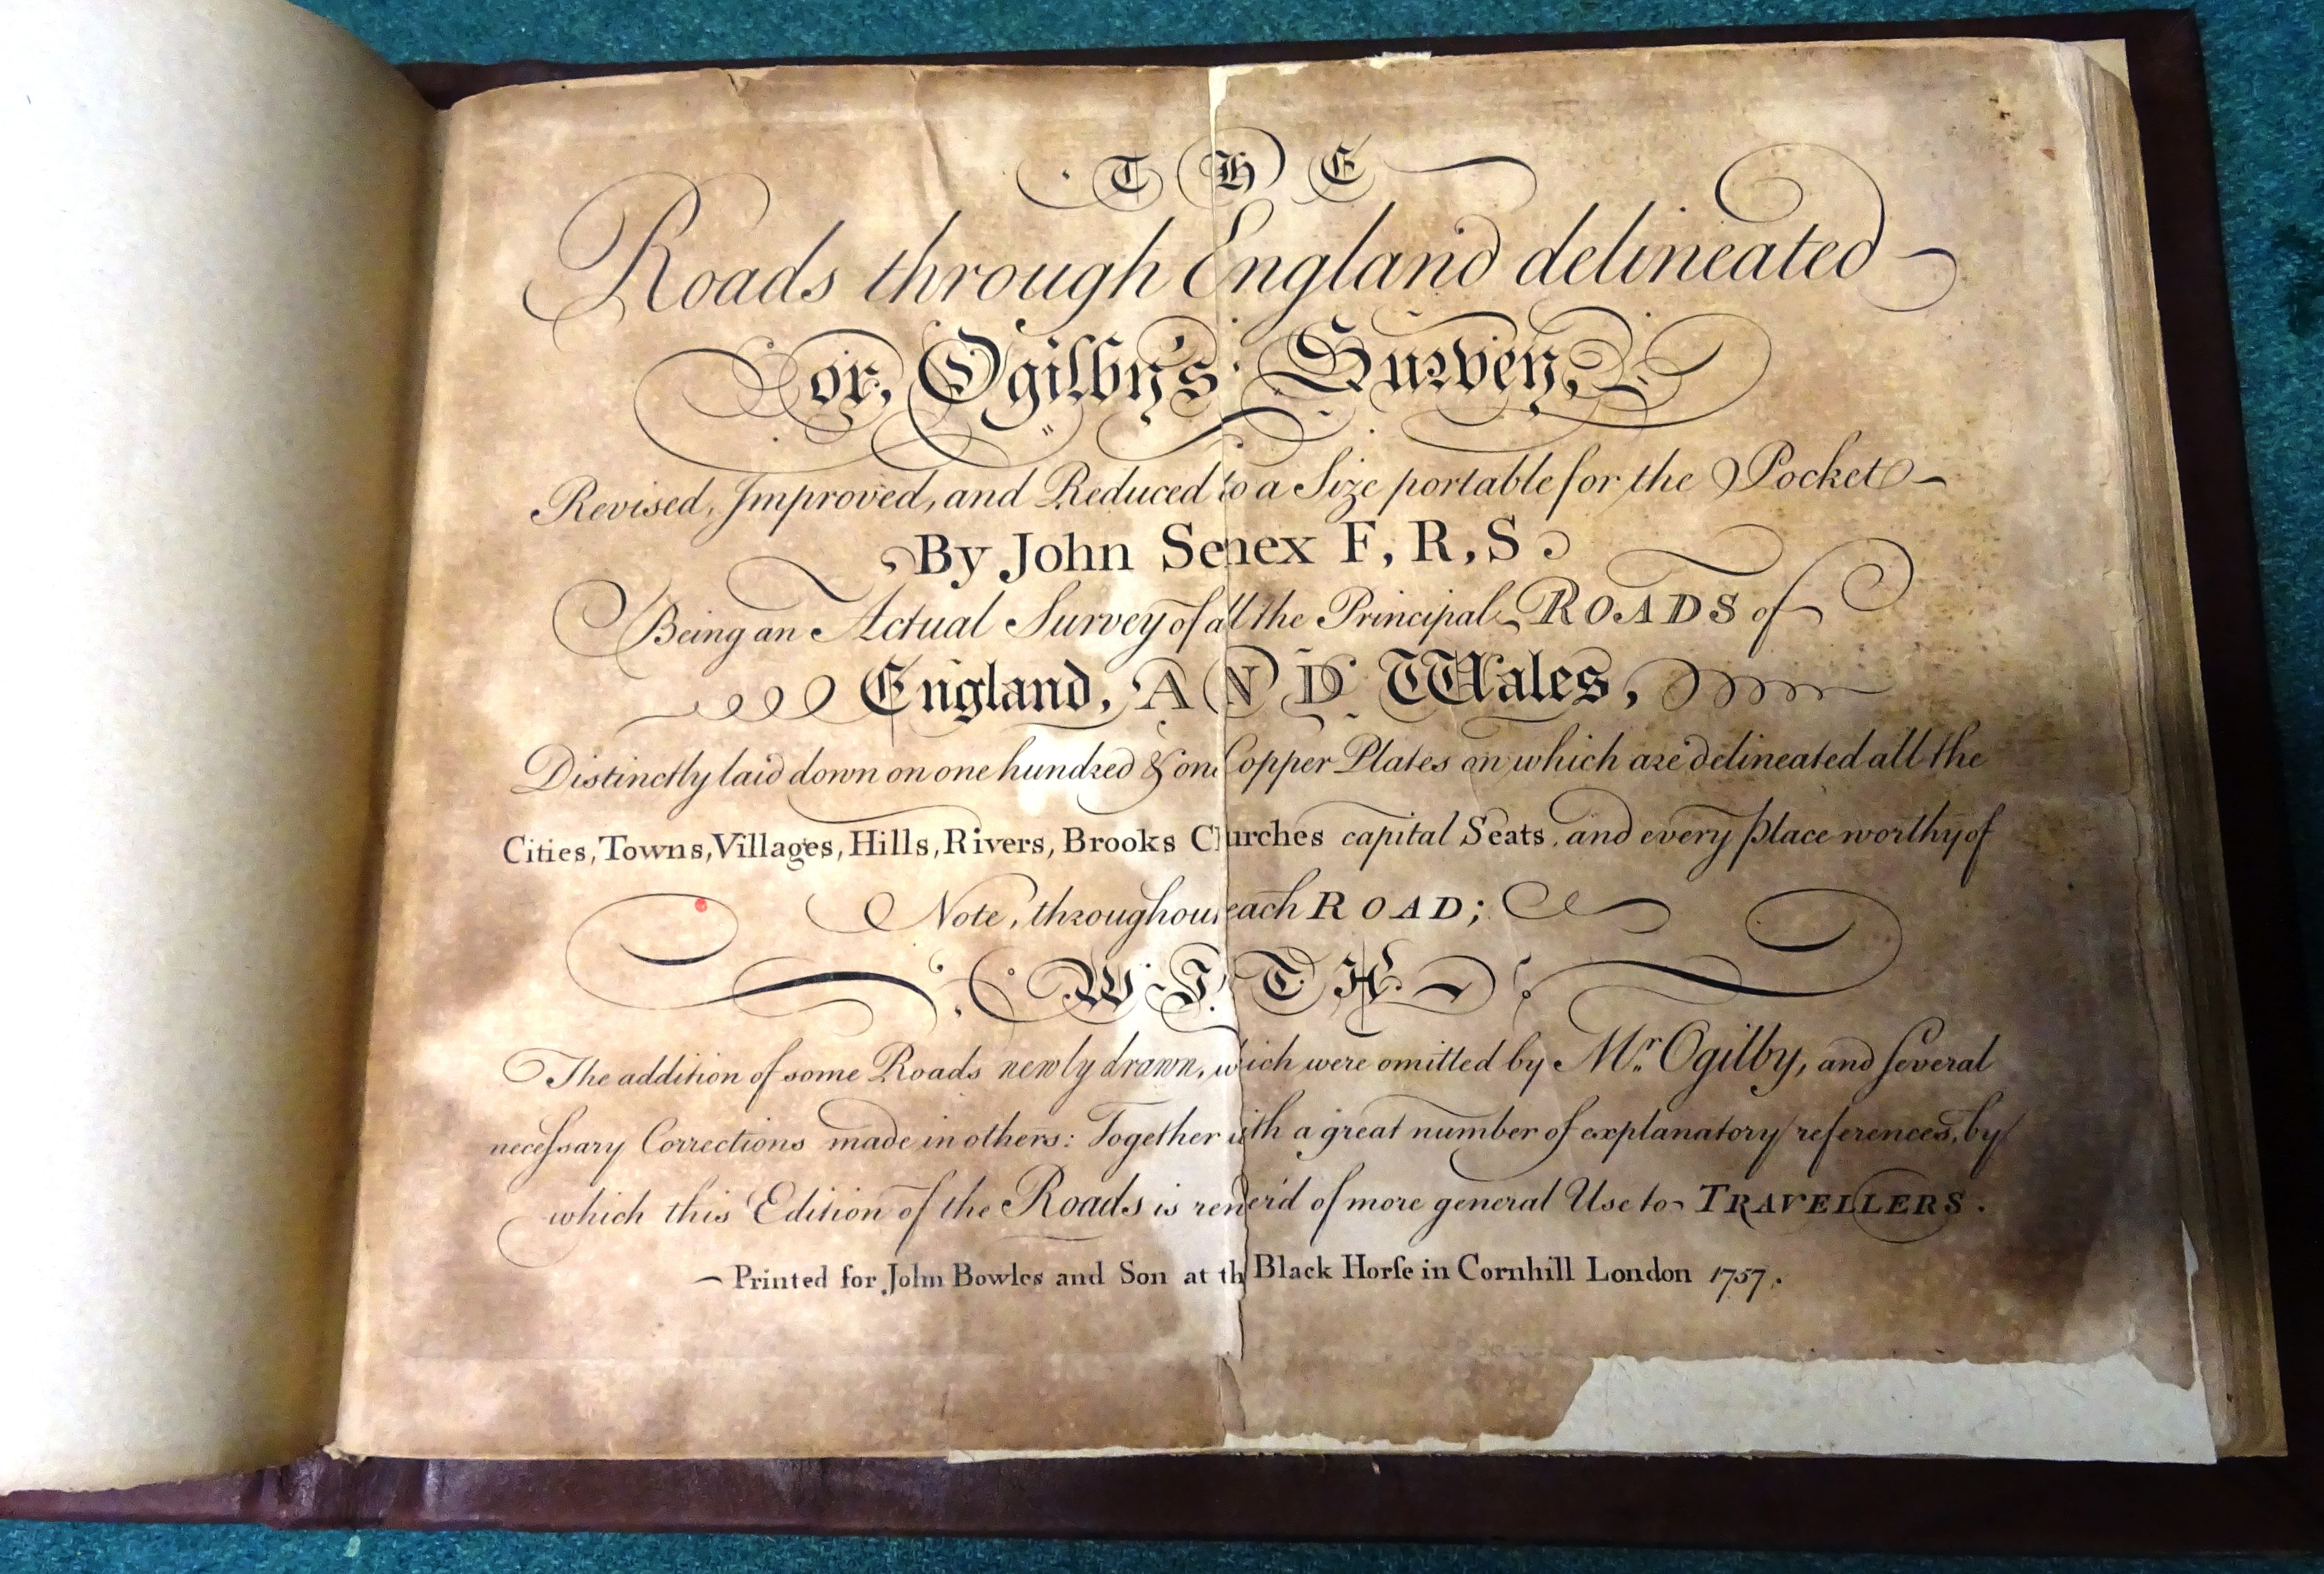 THE
Roads through England delineated
or, Ogilby's Survey,
Revised, Improved, and Reduced to a Size portable for the Pocket
By John Senex F, R, S
Being an Actual Survey of all the Principal ROADS of
England, AND Wales,
Distinctly laid down on one hundred & one Copper Plates on which are delineated all the
Cities, Towns, Villages, Hills, Rivers, Brooks Churches capital Seats, and every place worthy of
Note, throughout each ROAD;
WITH
The addition of some Roads newly drawn, which were omitted by Mr. Ogilby, and several
neceſsary Corrections made in others: Together with a great number of explanatory references, by
which this Edition of the Roads is render'd of more general Use to TRAVELLERS.
Printed for John Bowles and Son at the Black Horſe in Cornhill London 1757.